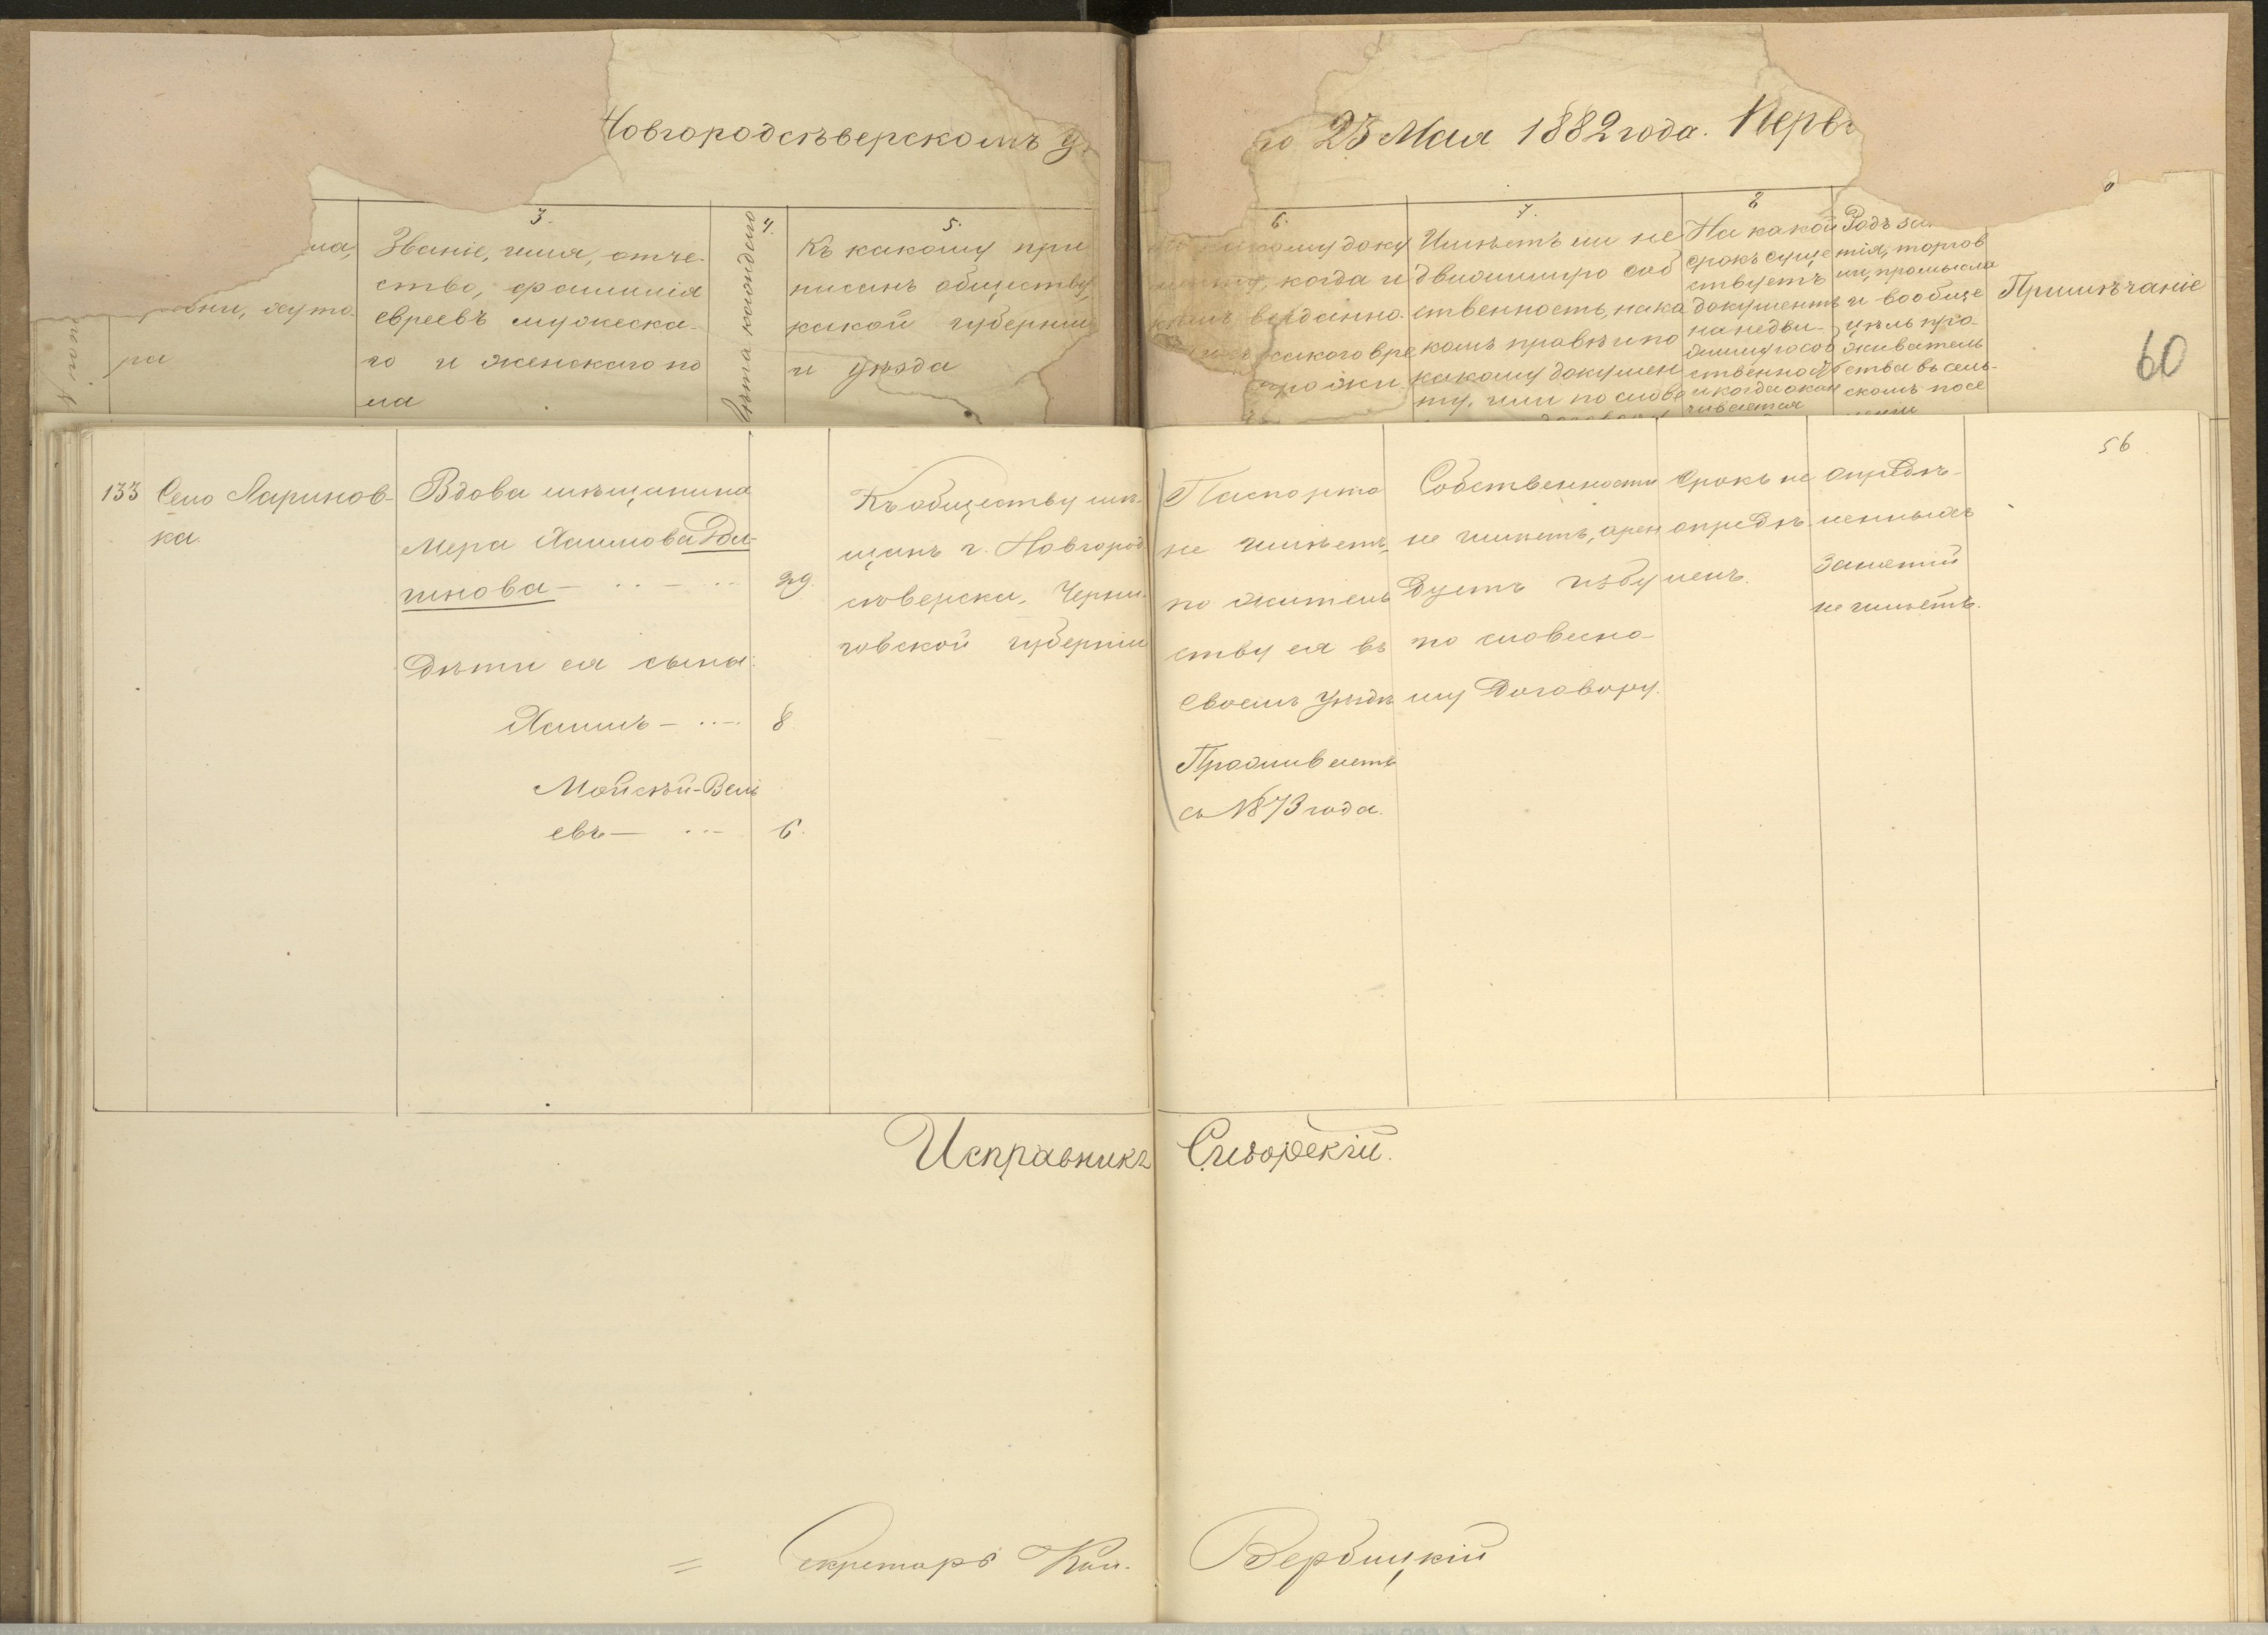 Новгородсѣверскомъ у
го 23 Мая 1882 года. Перв
3.
4.
5.
6.
7.
8
ла,
вни, хуто
ра
Званіе, имя, отче-
ство, фамилія
евреевъ мужеска-
го и женскаго по
ла
Лѣта каждаго
Къ какому при
писанъ обществу,
какой губерніи
и уѣзда
какому доку
менту, когда и
кѣмъ выданно-
какого вре
прожи
Имѣетъ ли не
движимую соб
ственность, на ка
комъ правѣ и по
какому докумен
ту, или по слове
договору
На какой
срокъ суще
ствуетъ
документъ
на недви-
жимую соб
ственность
и когда окан
чивается
Родъ за
тія, торгов
ли, промысла
и вообще
цѣль про-
живатель
ства въ сель-
скомъ посе
леніи
Примѣчаніе
60
56
133
Село Ларинов-
ка.
Вдова мѣщанина
Мера Хаимова
шнова — 29.
Дѣти ея сыны:
Хаимъ — 8
Мойсѣй-Вель
евъ — 6.
Къ обществу мѣ-
щанъ г. Новгород
сѣверска, Черни-
говской губерніи
Паспорта
не имѣетъ,
по житель
ству ея въ
своемъ уѣздѣ
Проживаетъ
съ 1873 года.
Собственности
не имѣетъ, арен
дуетъ избу
по словесно-
му договору.
Срокъ не
опредѣ
ленъ.
Опредѣ-
ленныхъ
занятій
не имѣетъ.
Исправникъ
Секретарь Кол.
Вербицкій